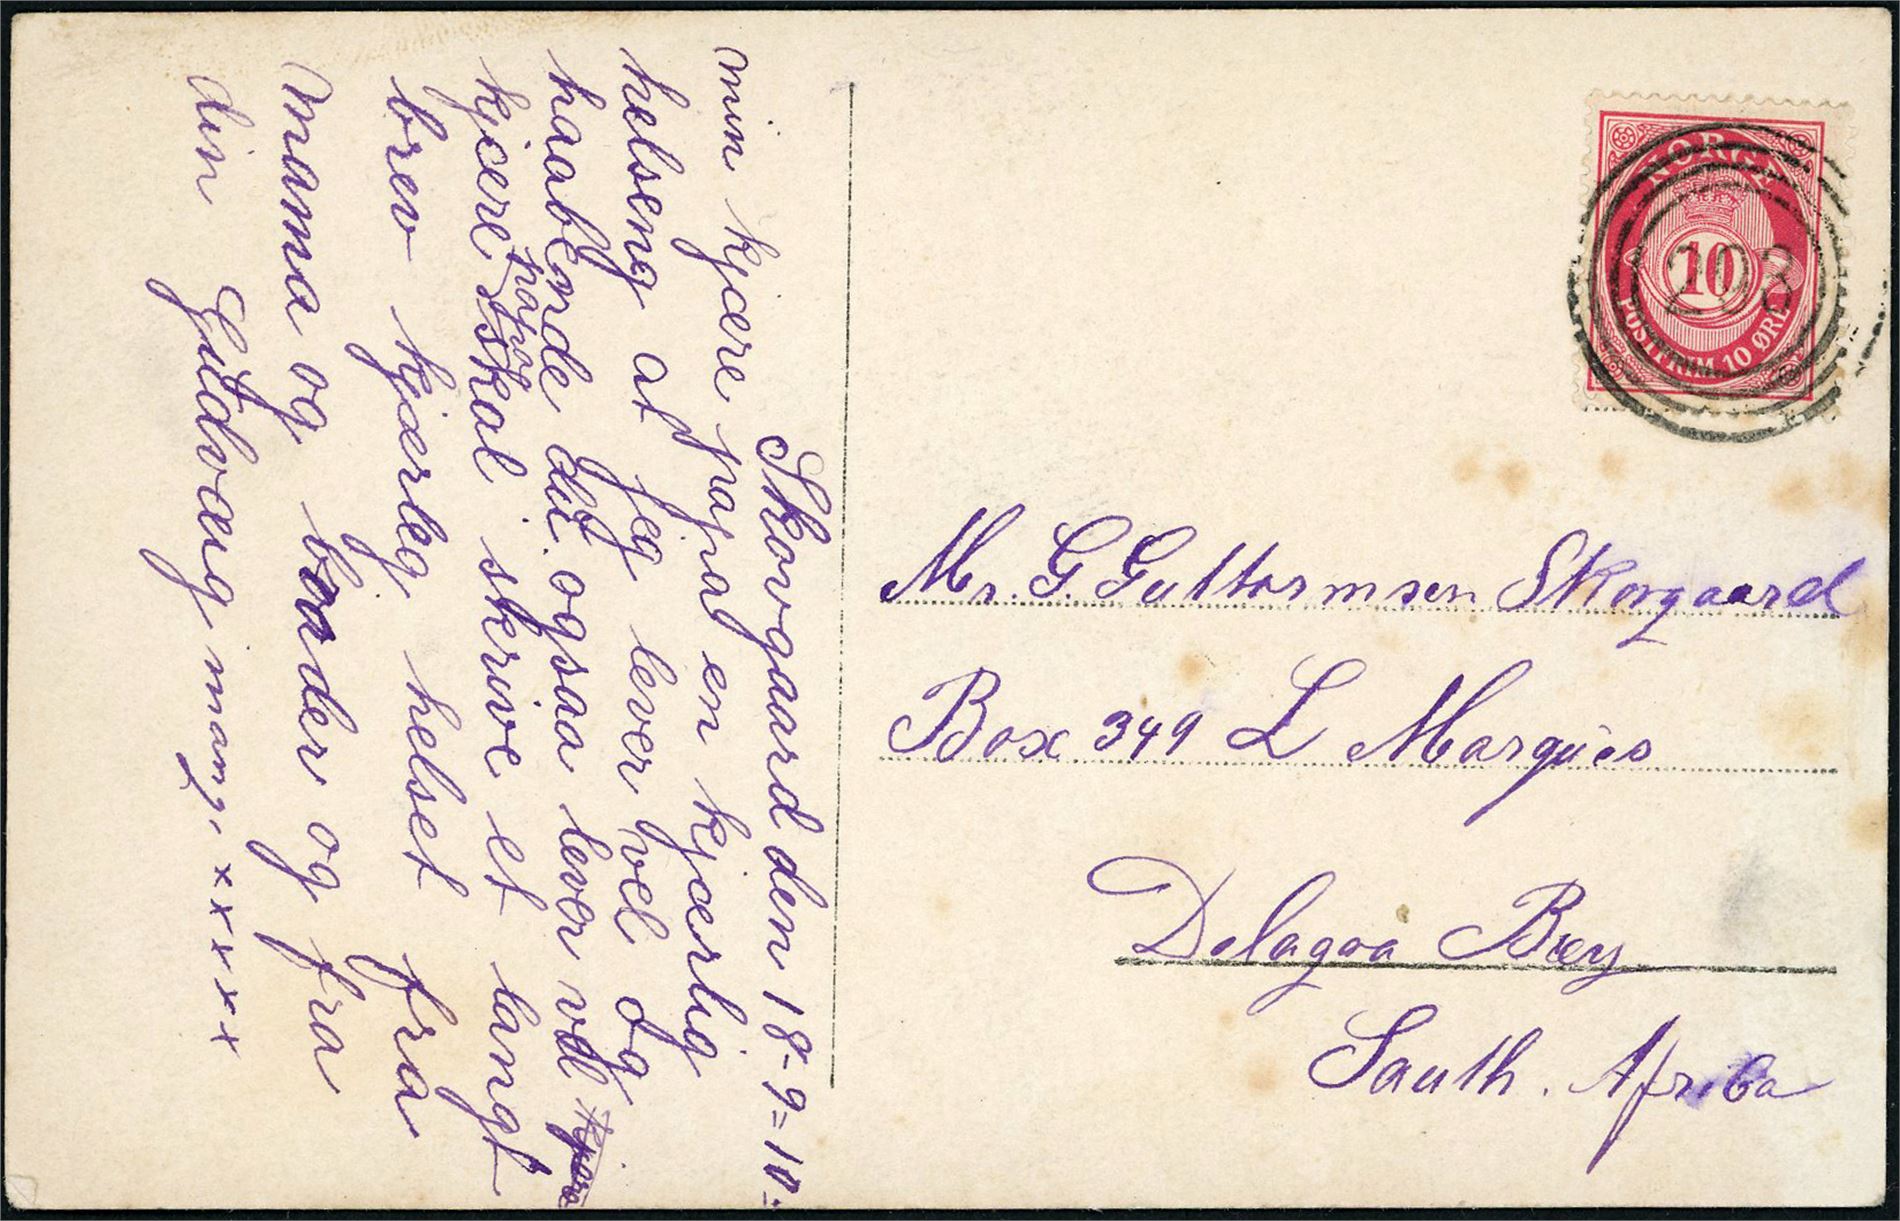 Skovgaard den 18-9-10.
min kjcere papa en kjcerlig
helseng at jeg lever vel og
haabende du ogsaa lever vel
kjcere papa skal skrive et langt
brev kjærleg helset fra
mama og brøder og fra
din Gudvæig mang. x x x x x
NORGE
POSTFRIM. 10 ØRE
10
293
Mr. G. Guttormsen Skovgaard
Box 349 L Marques
Delagoa Bay
South. Afrika